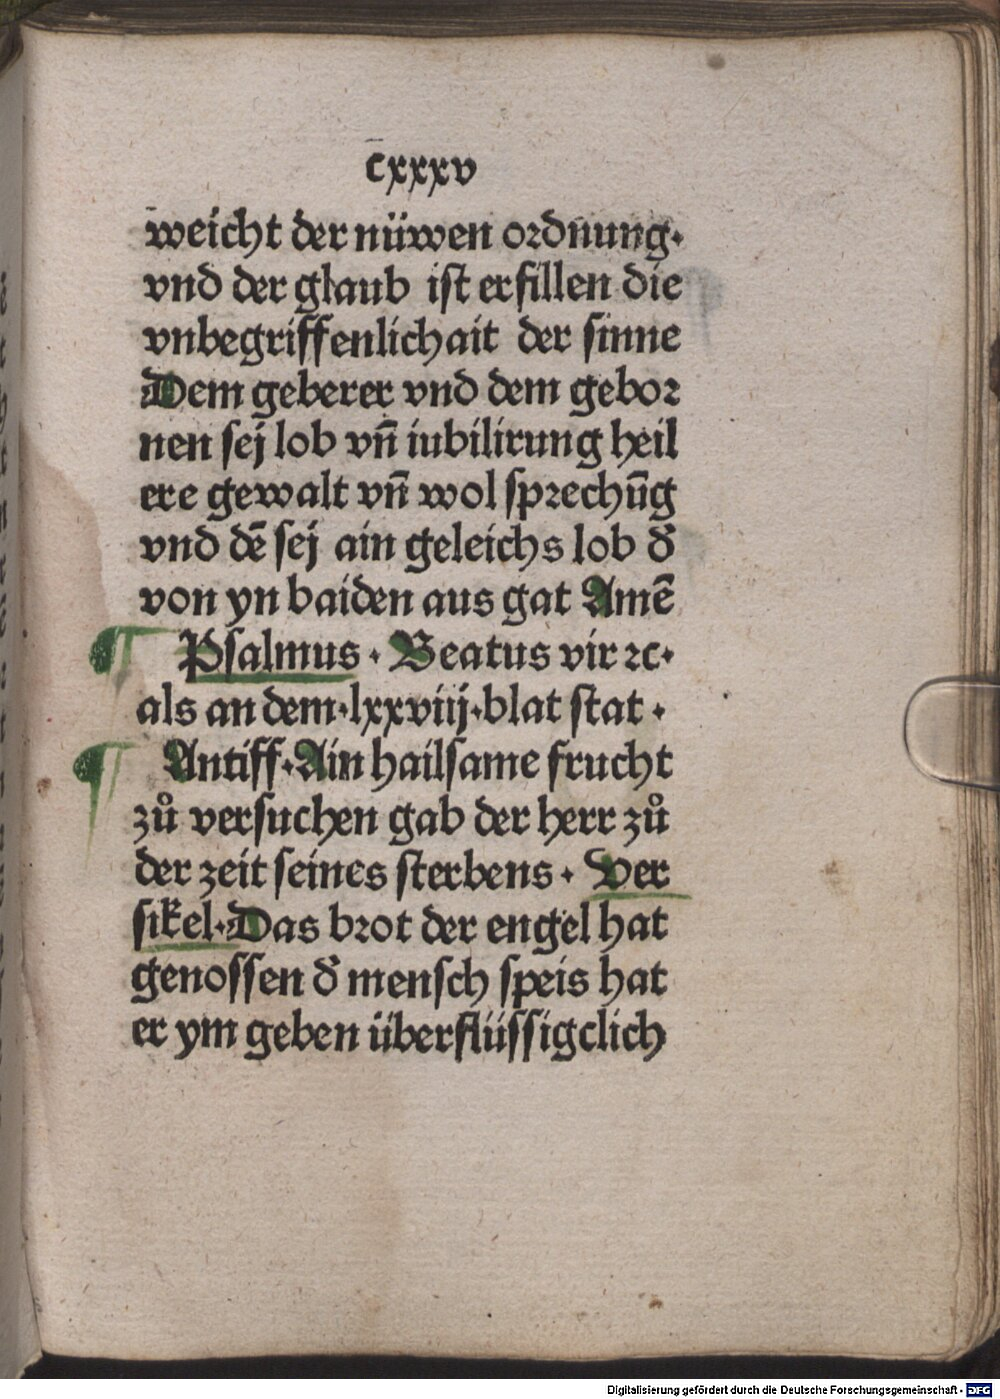 cxxxv
weicht der nüwen ordnung.
vnd der glaub ist erfillen die
vnbegriffenlichait der sinne
Dem geberer vnd dem gebor
nen sej lob vn̄ iubilirung heil
ere gewalt vn̄ wol sprechūg
vnd dē sej ain geleichs lob d̕
von yn baiden aus gat Amē
¶ Psalmus . Beatus vir ꝛc.
als an dem.lxxviij.blat stat .
¶ Antiff.Ain hailsame frucht
zů versuchen gab der herr zů
der zeit seines sterbens . Ver
sikel.Das brot der engel hat
genossen d̕ mensch speis hat
er ym geben überflüssigclich
Digitalisierung gefördert durch die Deutsche Forschungsgemeinschaft - DFG